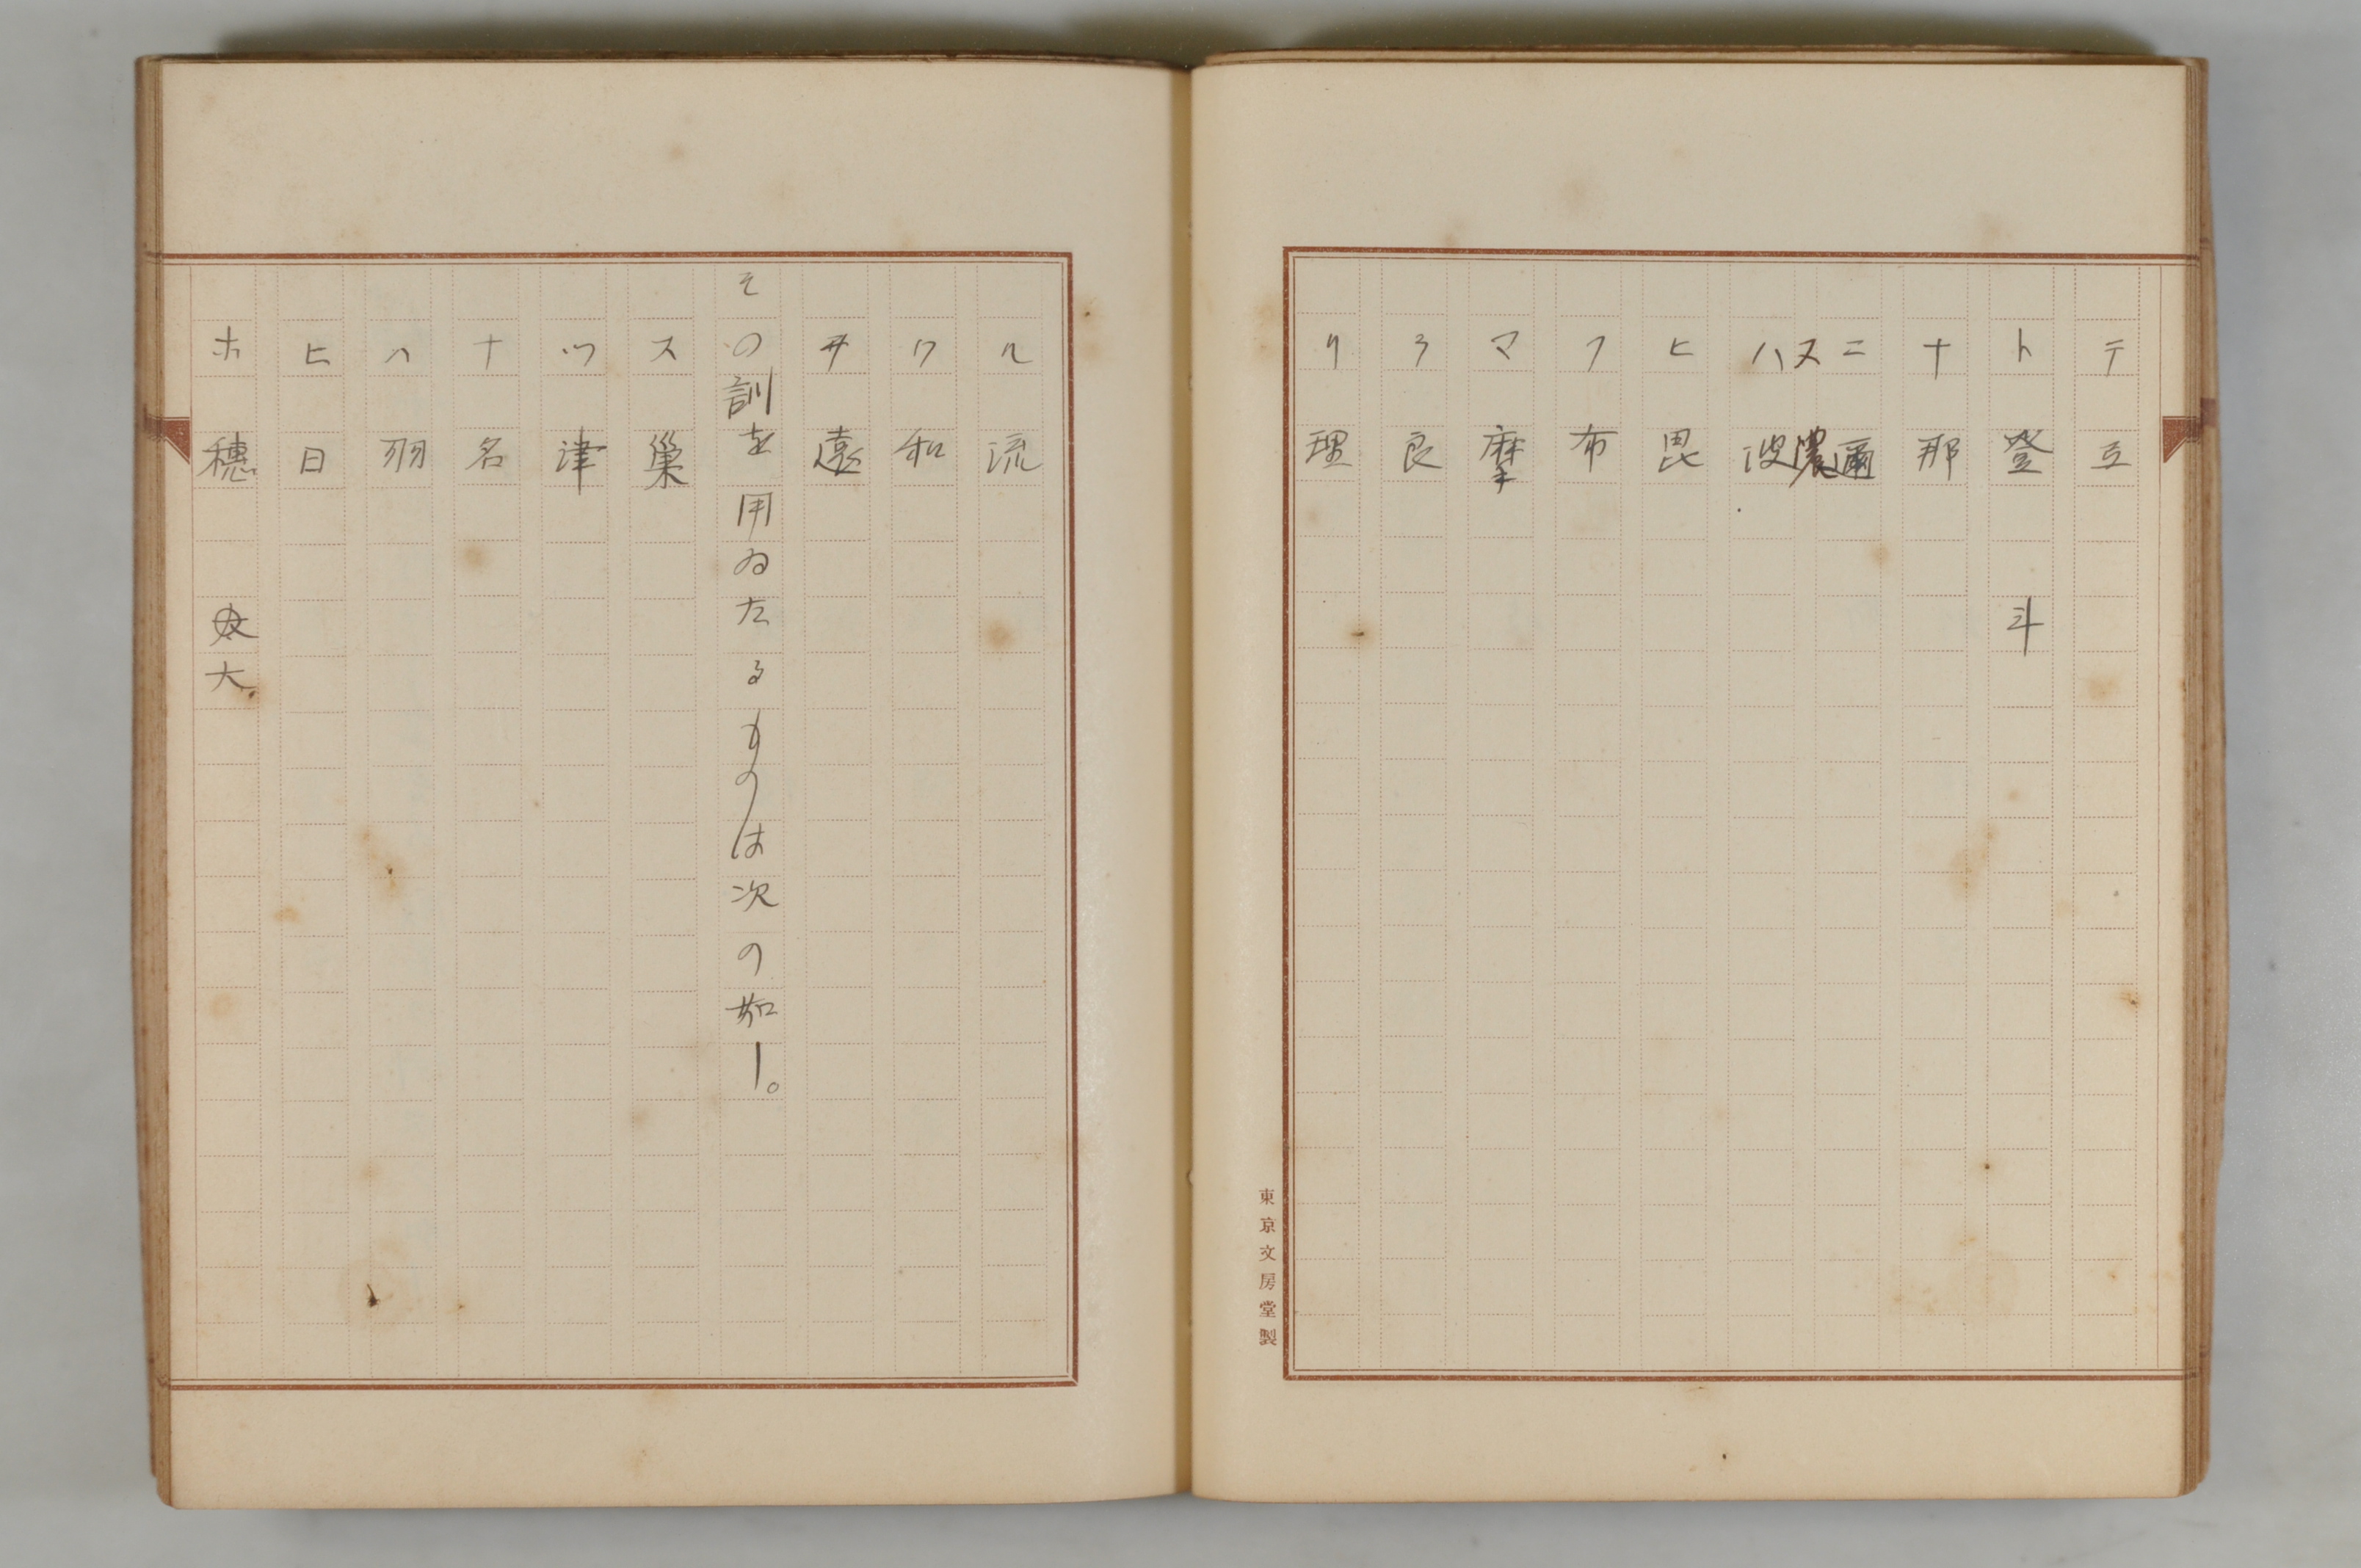 テ 互
ト 登 斗
ナ 那
ニ 邇
ヌ 濃
ハ 波
ヒ 毘
フ 布
マ 摩
ラ 良
リ 理
東京文房堂製
ル 流
ワ 和
ヲ 遠
その訓を用ゐたるものは次の如し。
ス 巣
ツ 津
ナ 名
ハ 羽
ヒ 日
ホ 穗 大